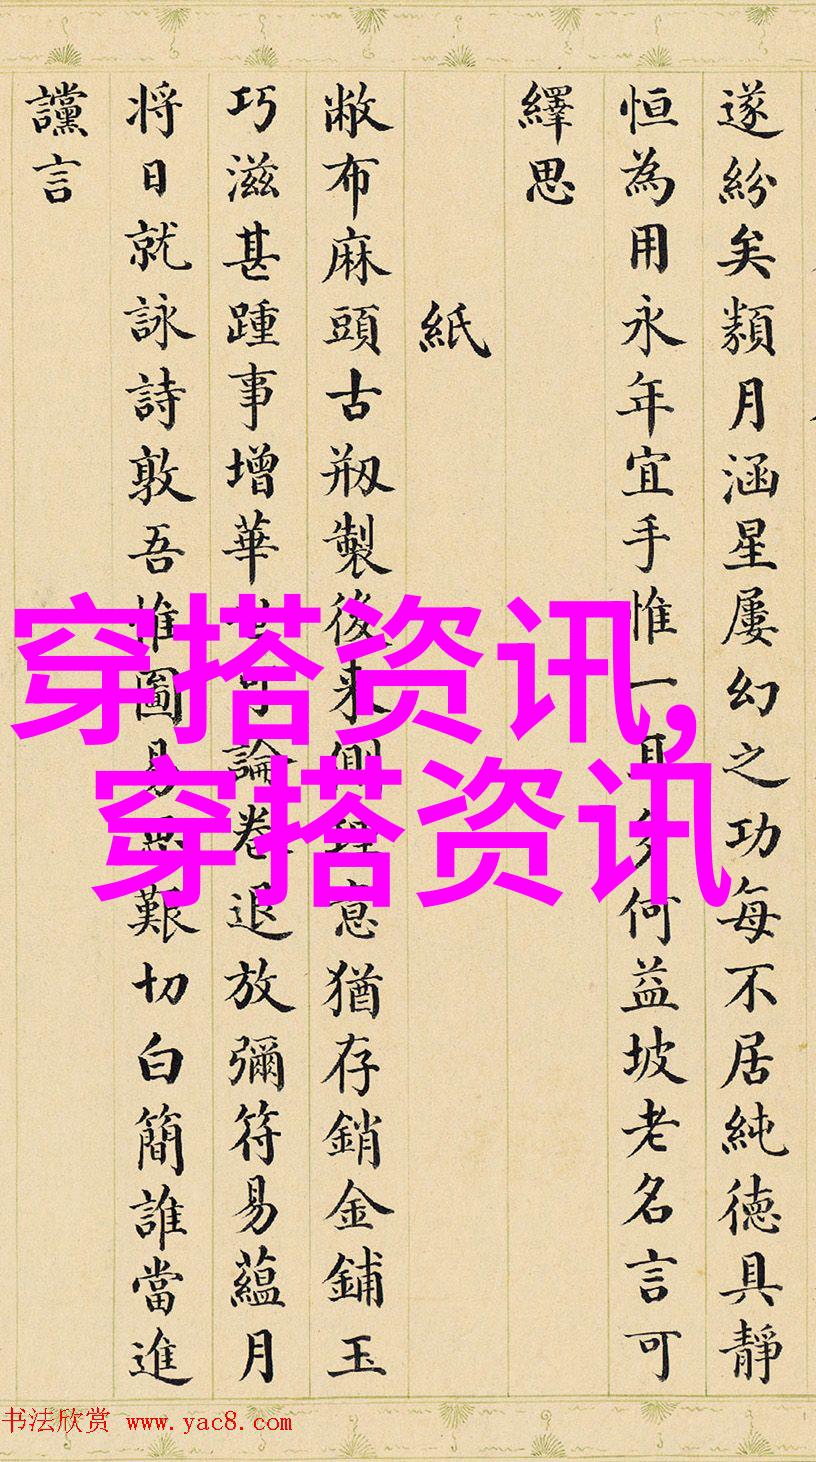 遂紛矣類月涵星屢幻之功每不居純德具靜
恒為用永年宜手惟一具多何益坡老名言可
繹思
紙
敝布麻頭古剏製後来側理意猶存銷金鋪玉
巧滋甚踵事增華可論卷退放彌符易蘊月
将日就詠詩敦吾惟圖易無艱切白簡誰當進
讜言
穿搭资讯,
穿搭资讯
书法欣赏 www.yac8.com